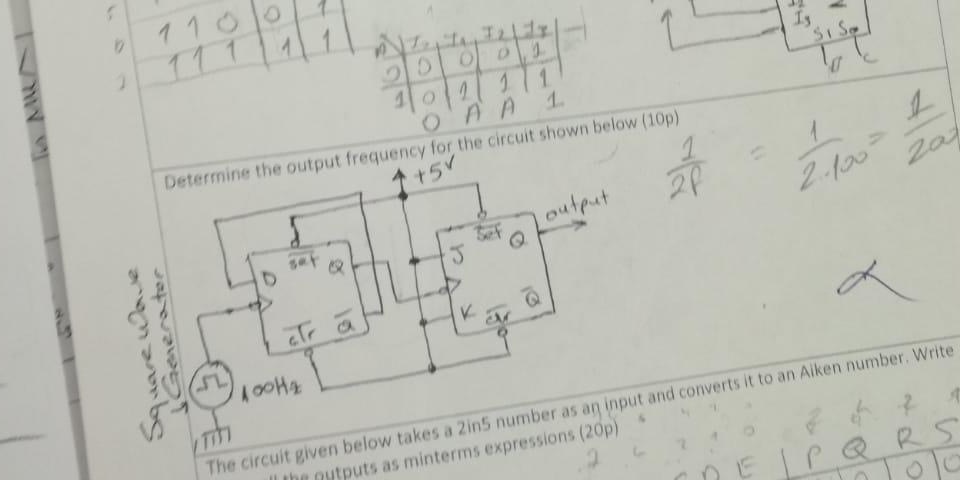 1 1 0 0 1
1 1 1 1 1
I0 I1 I2 I3
0 0 0 0 1
1 0 1 1 1
0 A A 1
I3
S1 S0
Determine the output frequency for the circuit shown below (10p)
+5V
1/2f = 1/2.100 = 1/200
D Set Q
Clr Q
J Set Q
K Clr Q
output
Square Wave
Generator
100Hz
The circuit given below takes a 2in5 number as an input and converts it to an Aiken number. Write
the outputs as minterms expressions (20p)
D E P Q R S
0 0